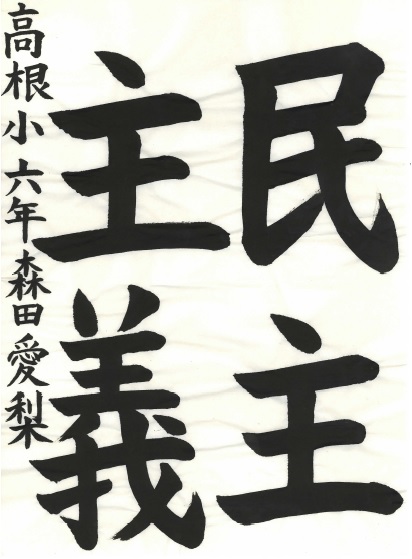 民主
主義
高根小六年森田愛梨